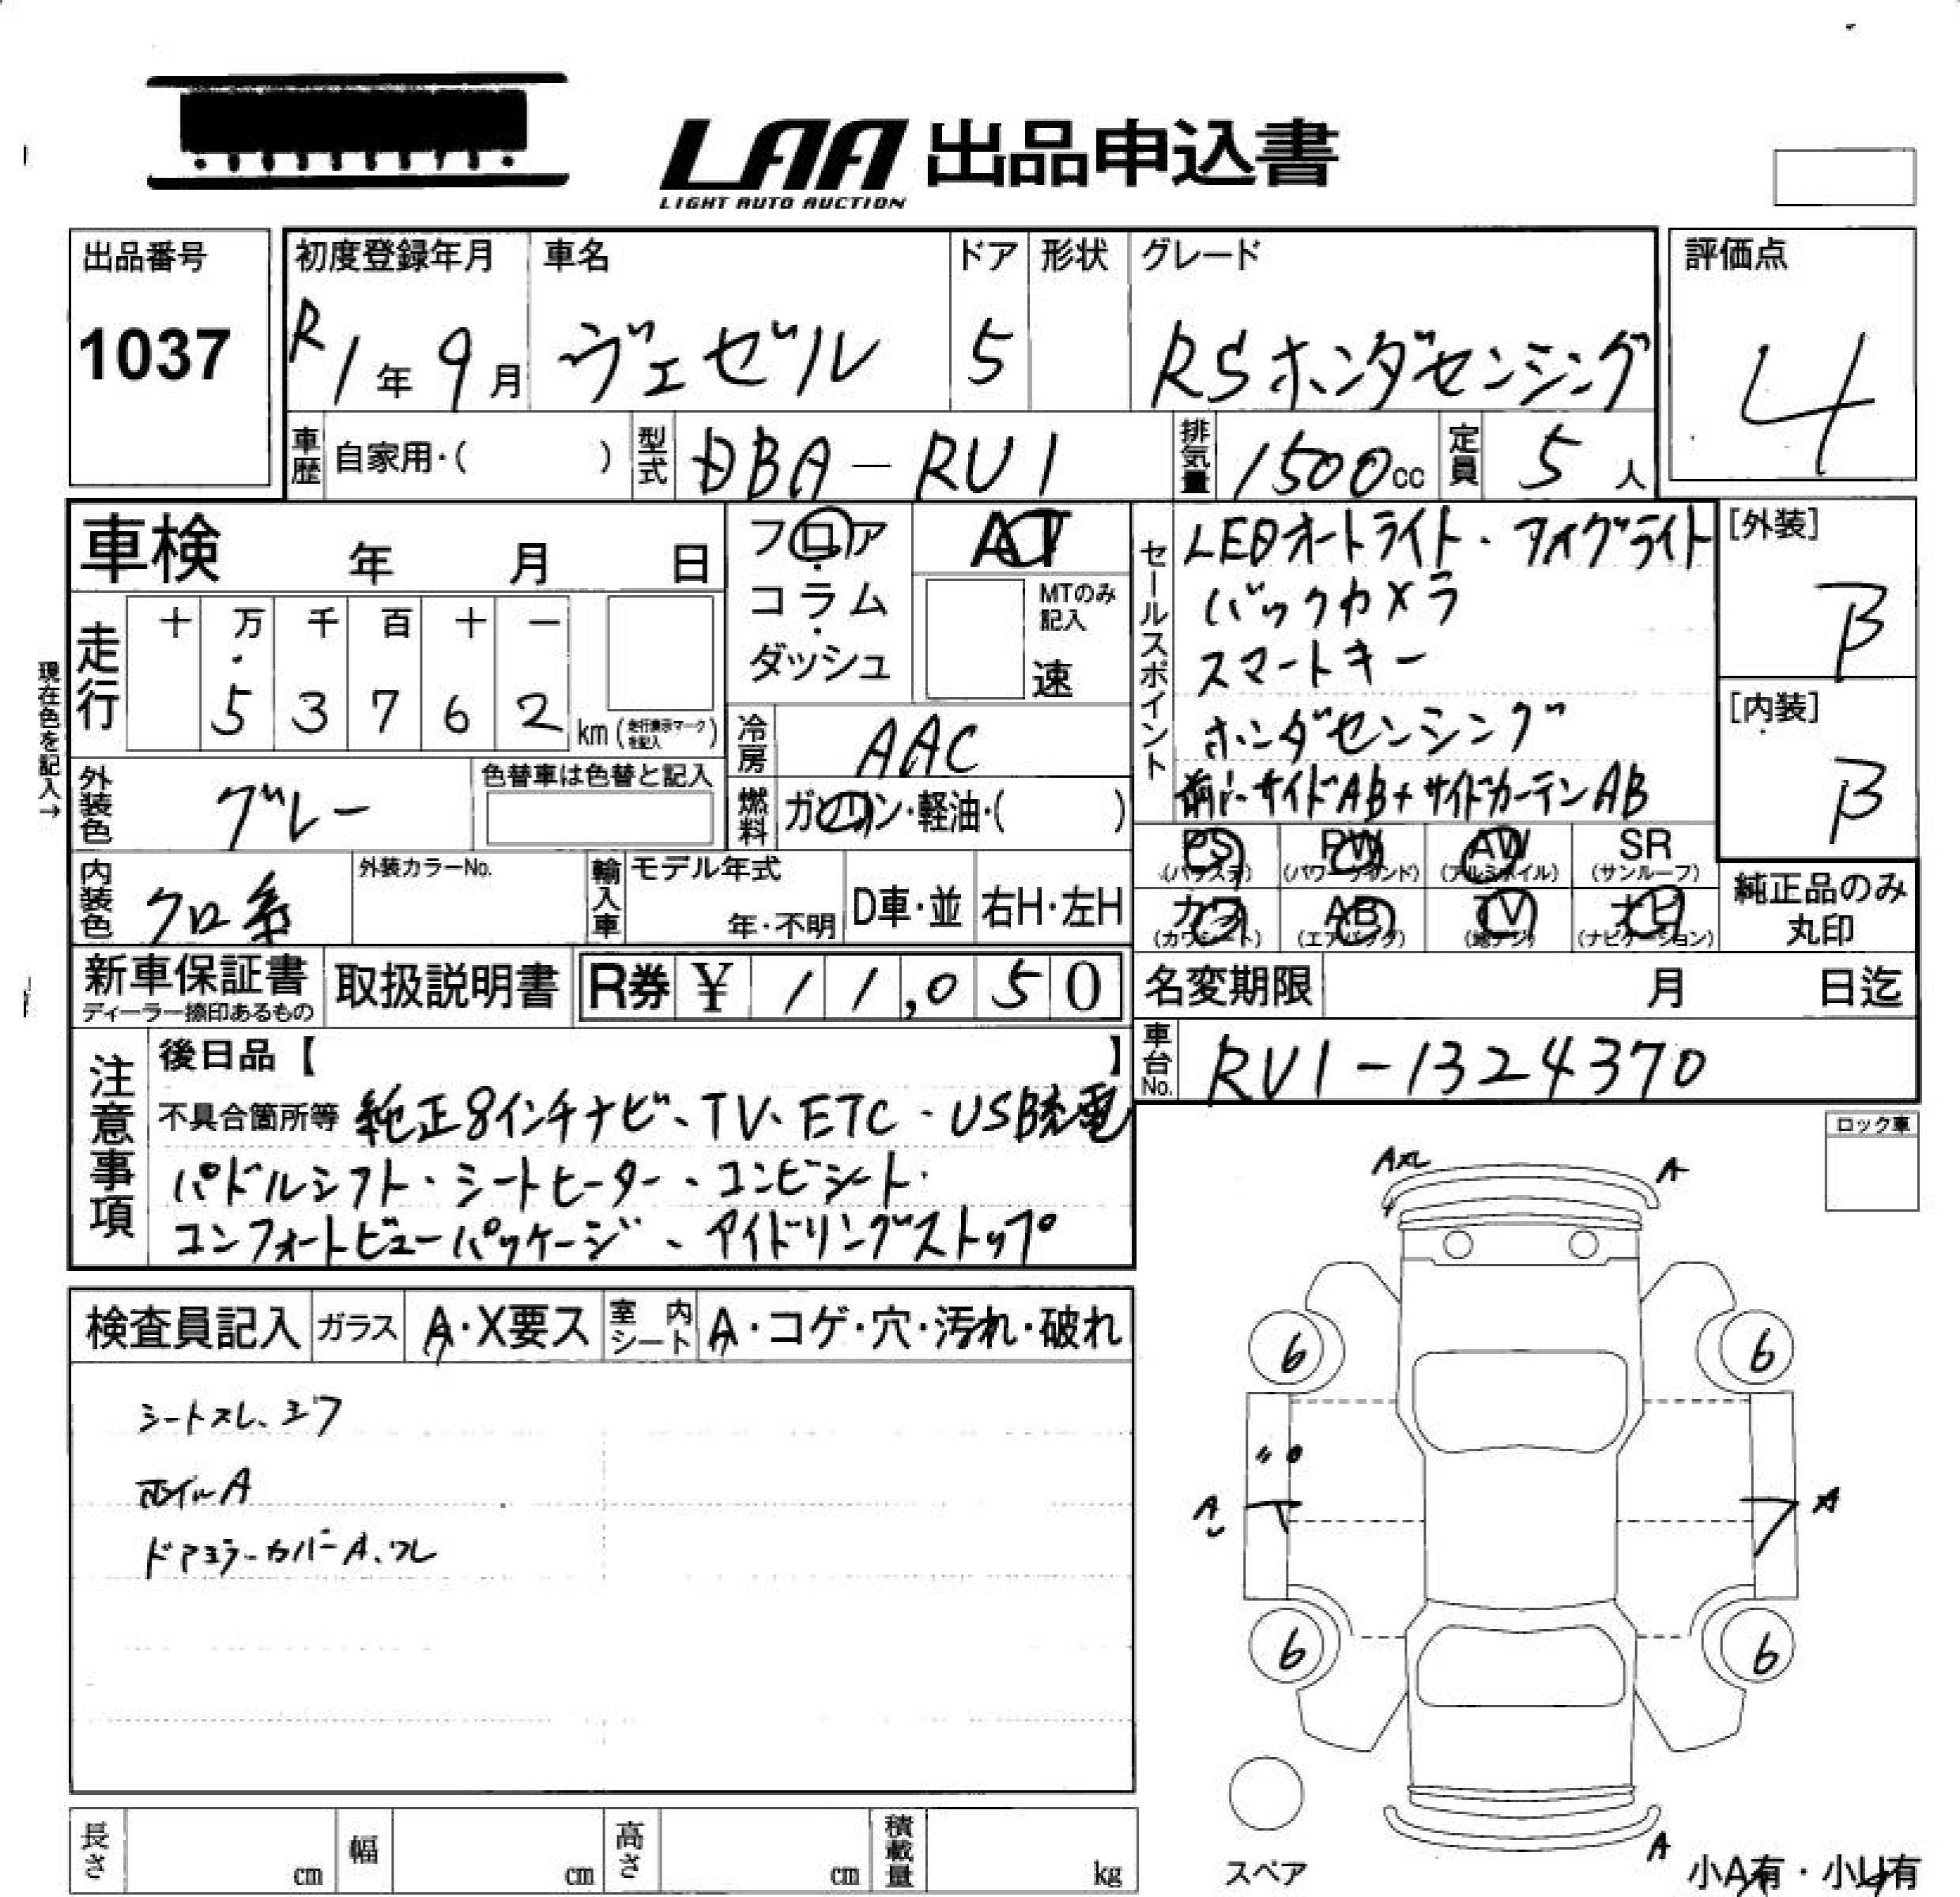 LAA 出品申込書
LIGHT AUTO AUCTION
出品番号
1037
初度登録年月
R1年9月
車名
ヴェゼル
ドア
5
形状
グレード
RSホンダセンシング
評価点
4
車歴
自家用・( )
型式
DBA-RU1
排気量
1500cc
定員
5人
車検 年 月 日
フロア・コラム・ダッシュ
AT
MTのみ記入
速
セールスポイント
LEDオートライト・フォグライト
バックカメラ
スマートキー
ホンダセンシング
前・サイドAB+サイドカーテンAB
[外装]
B
[内装]
B
現在色を記入→
走行
十 万 千 百 十 一
5 3 7 6 2
km(走行表示マークを記入)
冷房
AAC
外装色
グレー
色替車は色替と記入
燃料
ガソリン・軽油・( )
PS (パワステ)
PW (パワーウィンド)
AW (アルミホイル)
SR (サンルーフ)
内装色
クロ系
外装カラーNo.
輸入車
モデル年式
年・不明
D車・並
右H・左H
カワ (カワシート)
AB (エアバック)
TV (地デジ)
ナビ (ナビゲーション)
純正品のみ丸印
新車保証書
ディーラー捺印あるもの
取扱説明書
R券 ¥11,050
名変期限 月 日迄
車台No.
RU1-1324370
注意事項
後日品【 】
不具合箇所等 純正8インチナビ、TV、ETC・USB充電
パドルシフト・シートヒーター、コンビシート
コンフォートビューパッケージ、アイドリングストップ
ロック車
AXL
A
検査員記入
ガラス
A・X要ス
室内シート
A・コゲ・穴・汚れ・破れ
シートスレ、シワ
ホイルA
ドアミラーカバーA、ワレ
6
6
A
A
6
6
A
スペア
小A有・小U有
長さ cm
幅 cm
高さ cm
積載量 kg